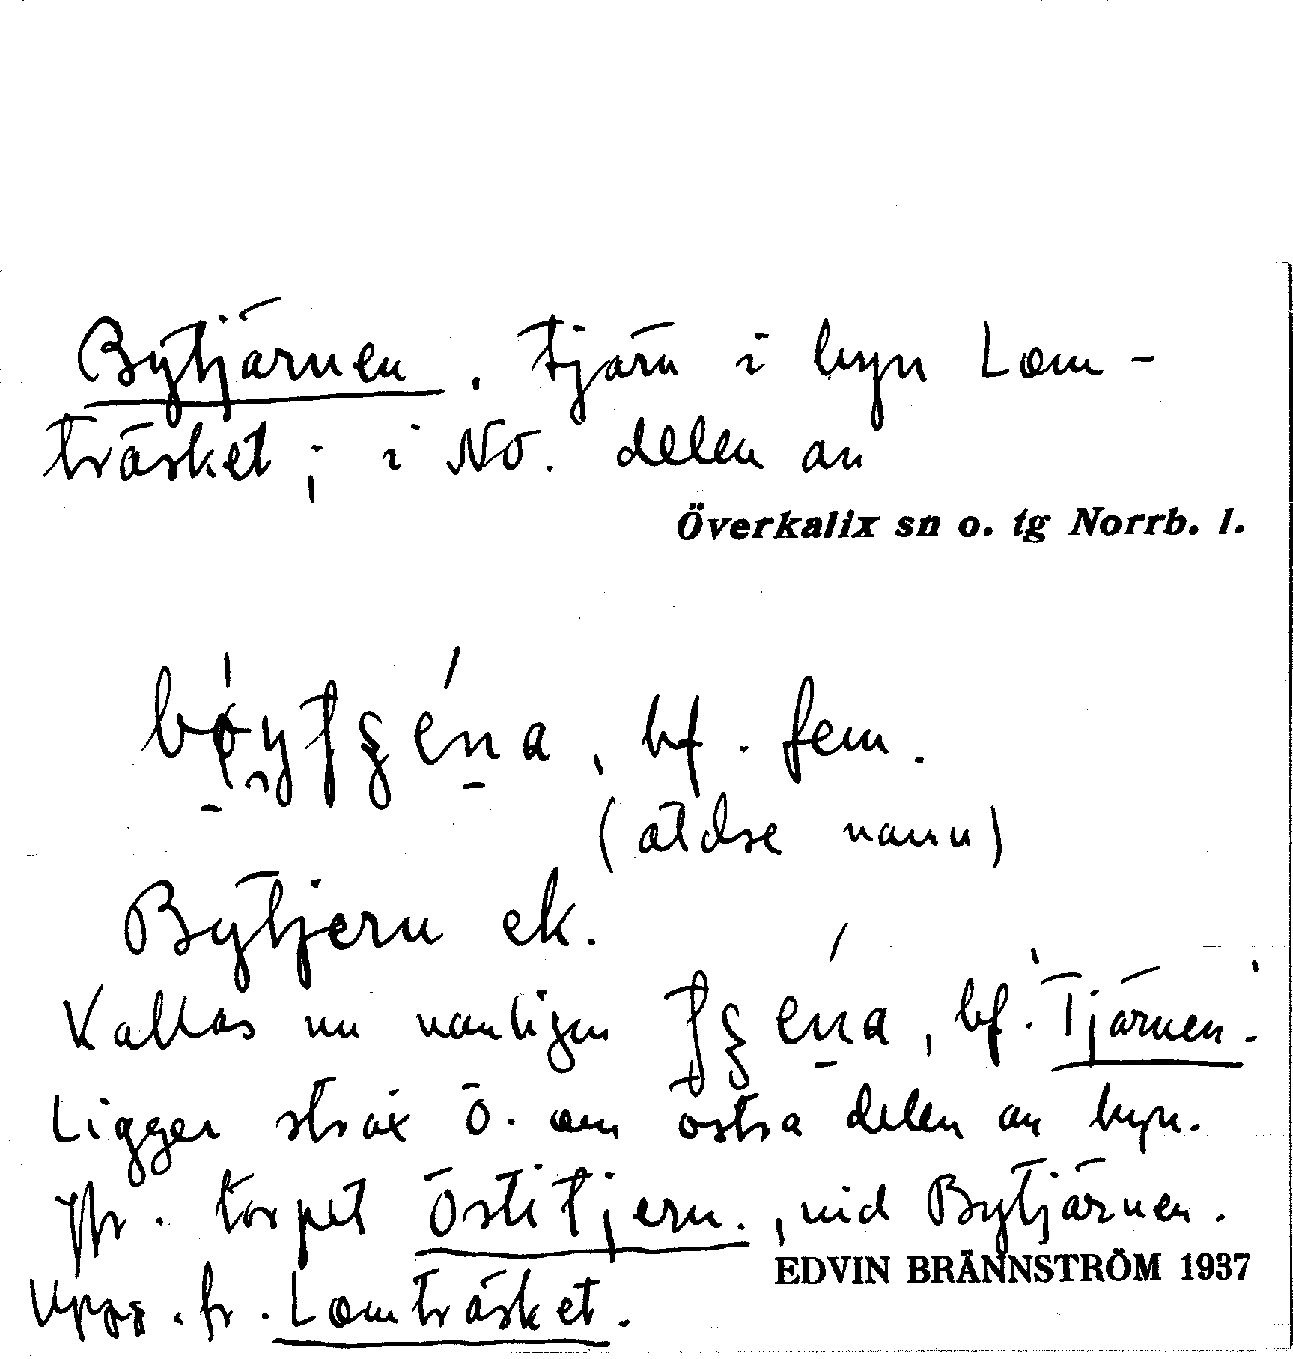 Bytjärnen. Tjärn i byn Lom-
träsket; i NÖ. delen av
Överkalix sn o. tg Norrb. l.
bf. fem.
(äldre namn)
Bytjern ek.
Kallas nu vanligen bf. 'Tjärnen.'
Ligger strax Ö. om östra delen av byn.
Jfr. torpet Östi Tjern., vid Bytjärnen.
EDVIN BRÄNNSTRÖM 1937
Uppg. fr. Lomträsket.